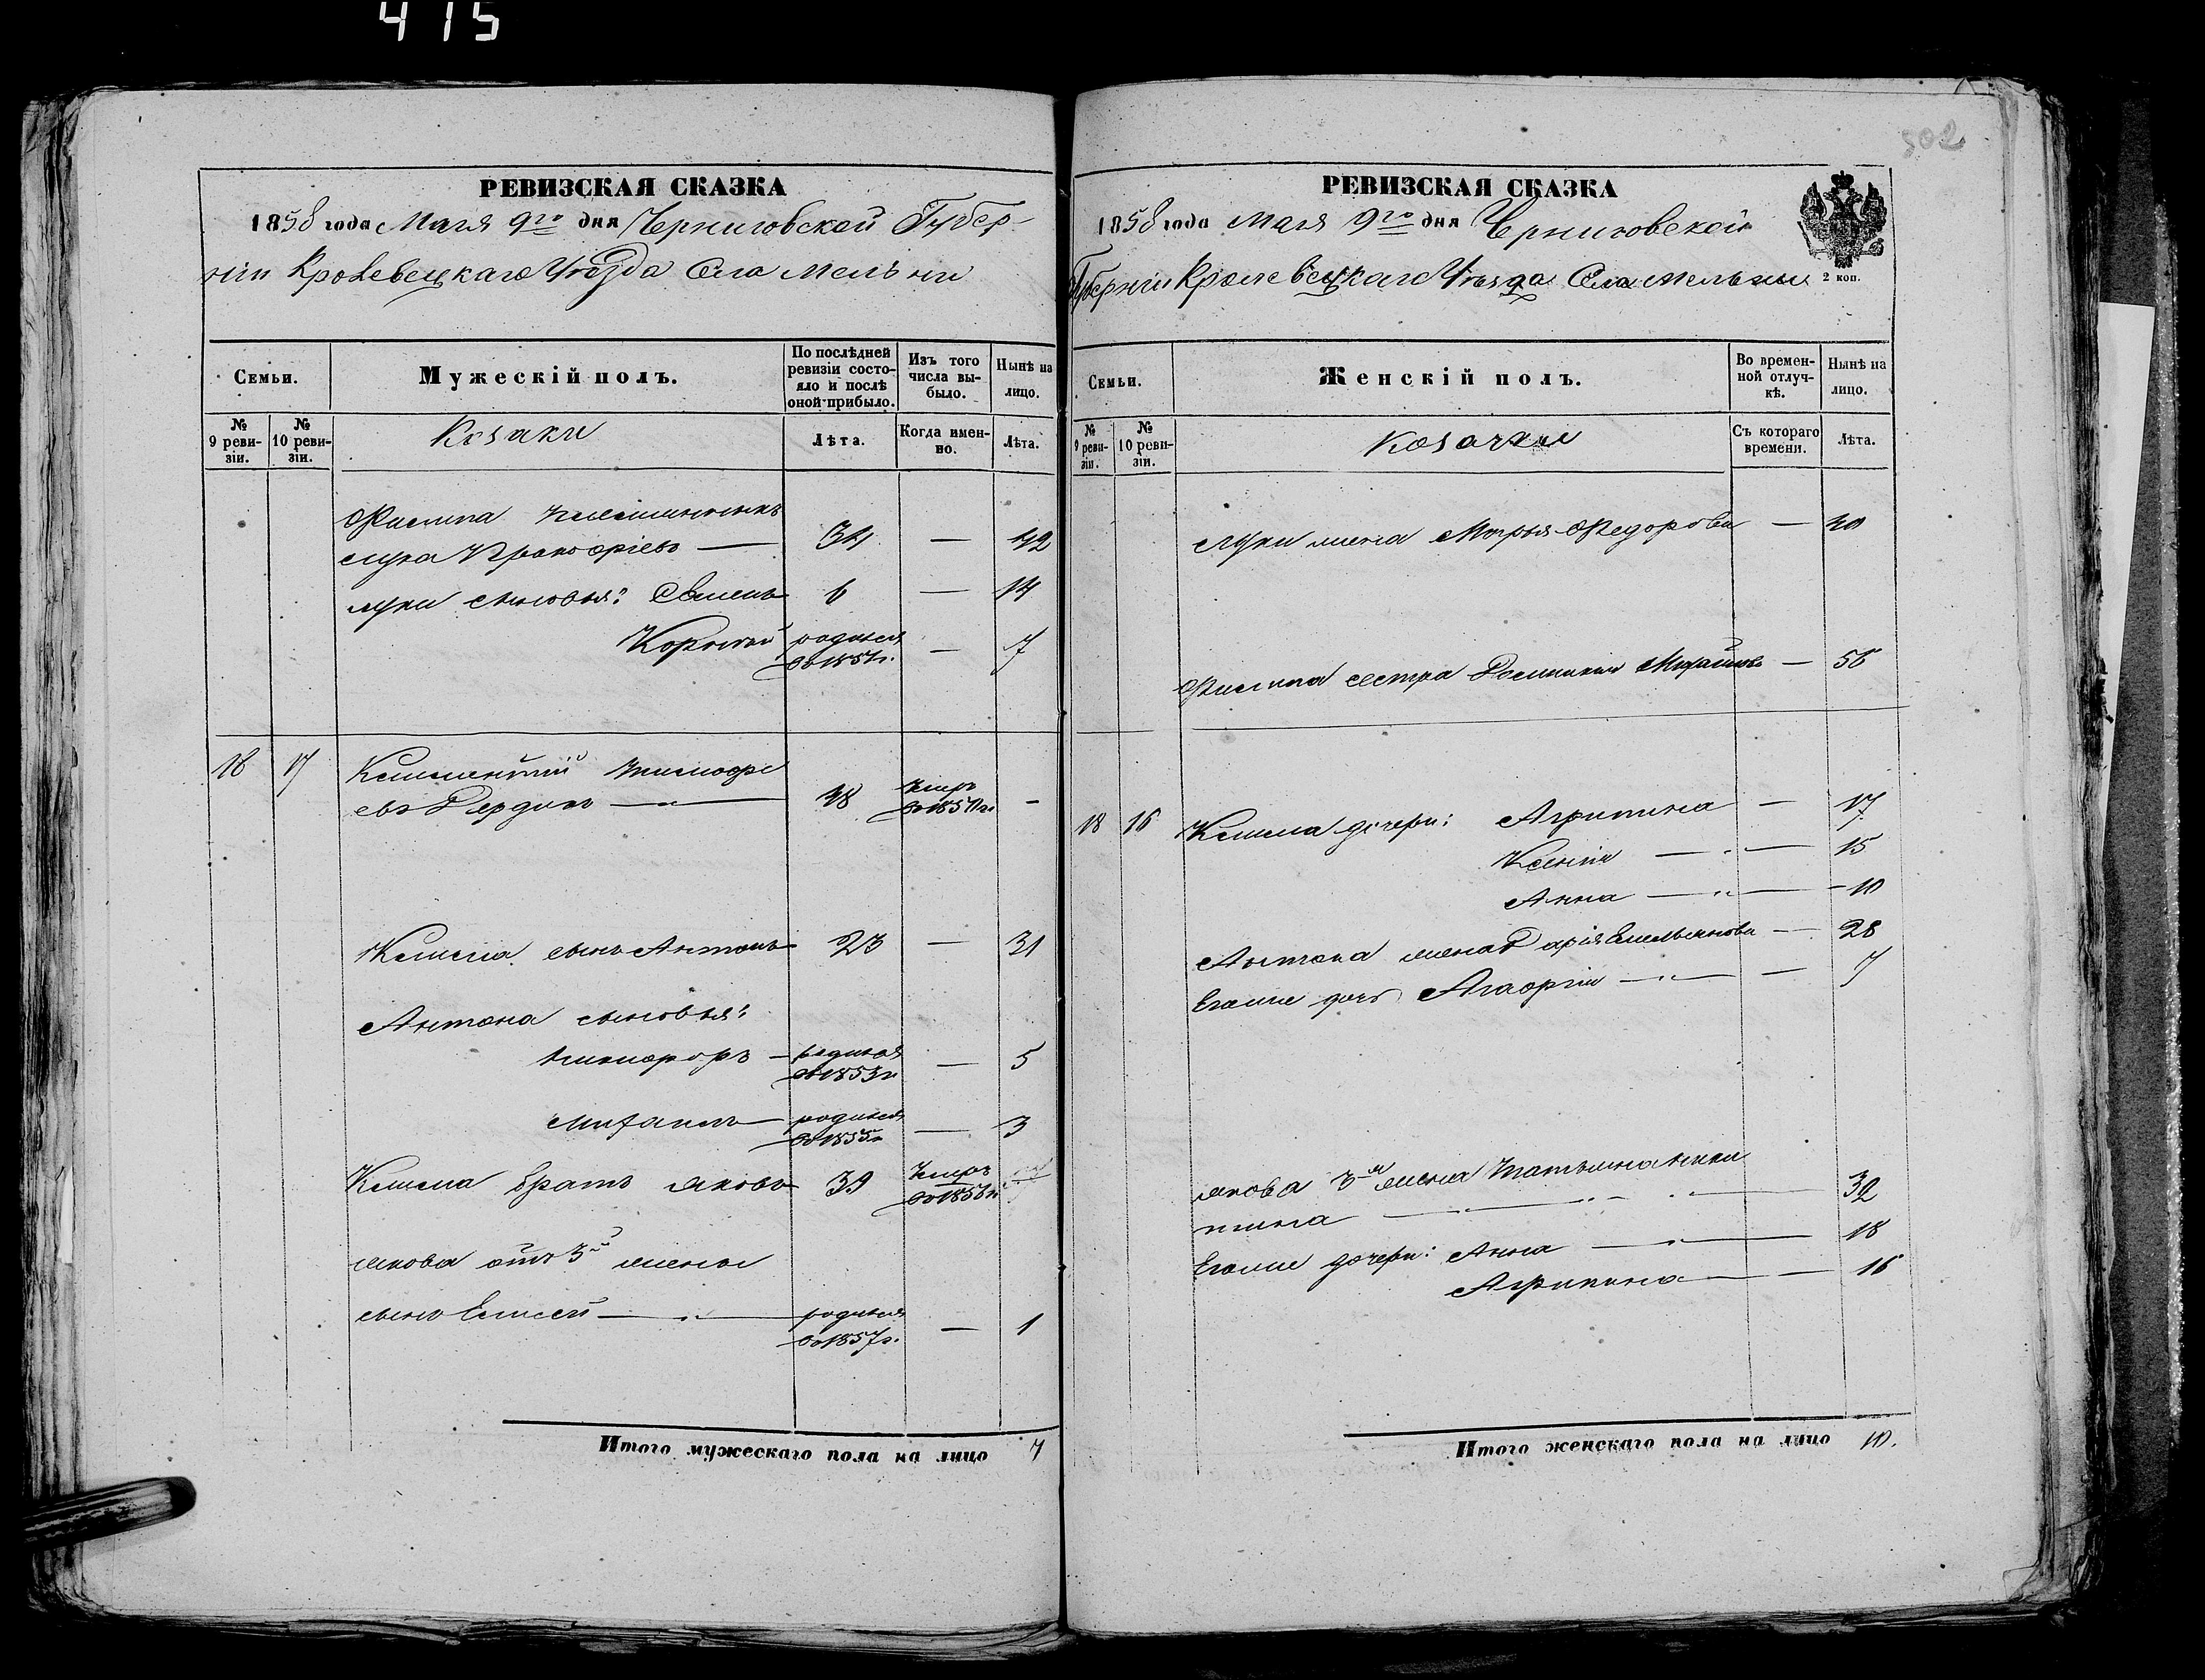 415
502
РЕВИЗСКАЯ СКАЗКА
1858 года Маия 9го дня Черниговской Губер-
ніи Кролевецкаго Уѣзда Села Мельни
Семьи.
Мужескій полъ.
По послѣдней ревизіи состояло и послѣ оной прибыло.
Изъ того числа выбыло.
Нынѣ на лицо.
№ 9 ревизіи.
№ 10 ревизіи.
Козаки
Лѣта.
Когда именно.
Лѣта.
Филипа племянникъ
Лука Прокофіевъ — 34 — 42
Луки сыновья: Семенъ 6 — 14
Корнѣй родился въ 1851г. — 7
18 17
Клименьтій
евъ Дердинъ — 48 Умеръ —
Клима сынъ Антонъ 23 — 31
Антона сыновья:
Никифоръ — родился въ 1853г — 5
Михаилъ — родился въ 1855г — 3
Клима братъ Яковъ 39 Умеръ въ 1856г
Якова отъ 3й жены
сынъ Елисей — родился въ 1857г. — 1
Итого мужескаго пола на лицо 7
РЕВИЗСКАЯ СКАЗКА
1858 года Маия 9го дня Черниговской
Губерніи Кролевецкаго Уѣзда Села Мельни
2 коп.
Семьи.
Женскій полъ.
Во временной отлучкѣ.
Нынѣ на лицо.
№ 9 ревизіи.
№ 10 ревизіи.
Козачки
Съ котораго времени.
Лѣта.
Луки жена Марья Федорова — 40
Филипа сестра — 56
18 16 Клима дочери: Агрипина — 17
Ксенія — 15
Анна — 10
Антона жена Дарія Емельянова — 28
Егоже дочь Агафія — 7
Якова 3я жена Татьяна Ники
тина — 32
Егоже дочери: Анна — 18
Агрипина — 16
Итого женскаго пола на лицо 10.